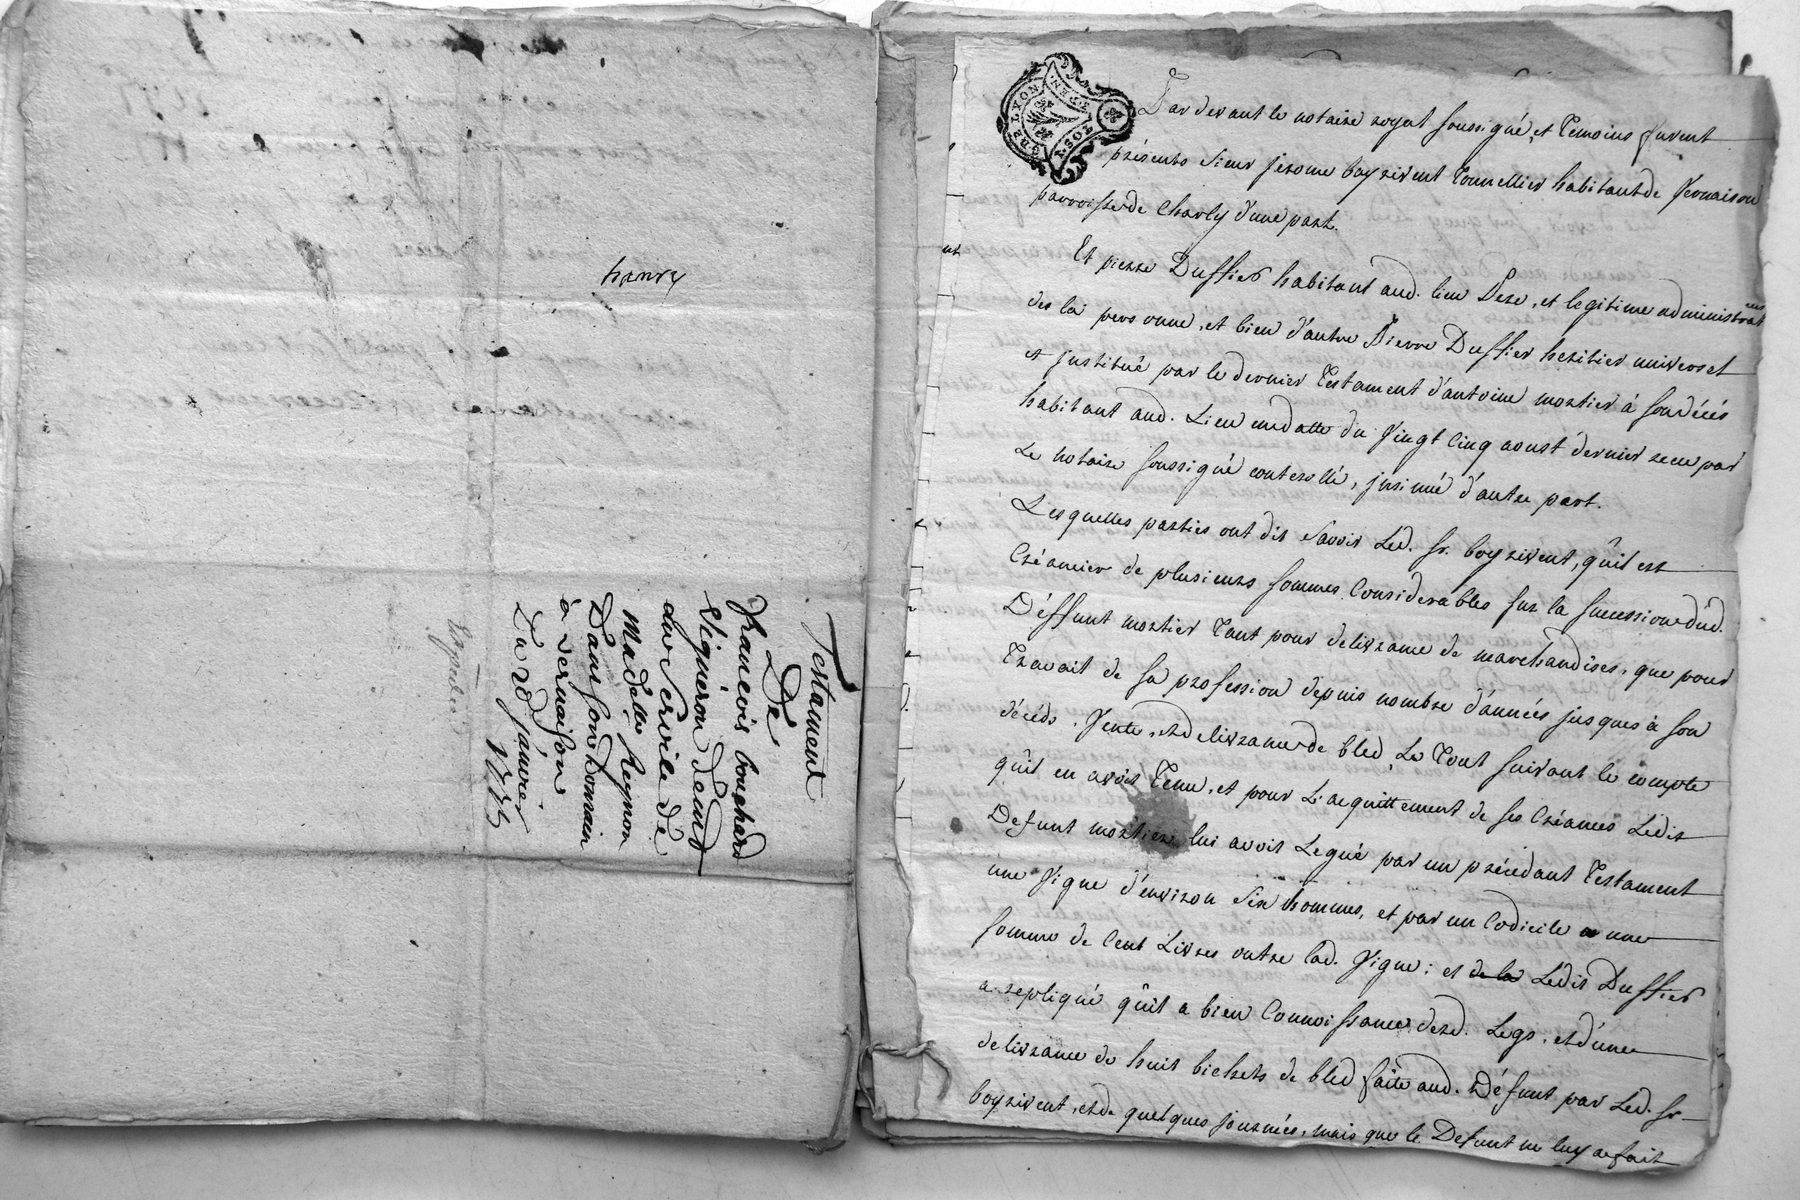 hanry
Testament
De
francois bouchard
Vigneron demt
au service de
Madelle Reynon
Dans son Domain
à vernaison
Du 29 janvier
1775
GNE LYON
Par devant le notaire royal soussigné, et Temoins furent
présents sieur jerome boyrivent Tonnellier habitant de Vernaison
parroisse de Charly d'une part.
Et pierre Duffier habitant aud. lieu Pere, et legitime administrateur
des la personne, et bien d'autre Pierre Duffier heritier universel
et justitué par le dernier Testament d'antoine mortier à son décés
habitant aud. Lieu en datte du Vingt Cinq aoust dernier recu par
Le notaire soussigné controllé, jnsinué d'autre part.
Lesquelles parties ont dit savoir Led. Sr. boyrivent, qu'il est
Créancier de plusieurs sommes Considerables sur la succession dud.
Deffunt mortier Tant pour delivrance de marchandises, que pour
Travail de sa profession depuis nombre d'années jusques à son
décéds, Vente, et delivrance de bled, Le Tout suivant le compte
qu'il en avoit Tenu, et pour L'acquittement de ses Créances Ledit
Defunt mortier lui avoit Legué par un précédant Testament
une Vigne d'environ six hommes, et par un Codicile une
somme de Cent Livres outre lad. Vigne; et de la Ledit Duffier
a repliqué qu'il a bien Connoissance desd. Legs, et d'une
delivrance de huit bichets de bled faite aud. Défunt par Led. Sr.
boyrivent, et de quelques journées, mais que le Defunt ne luy a fait